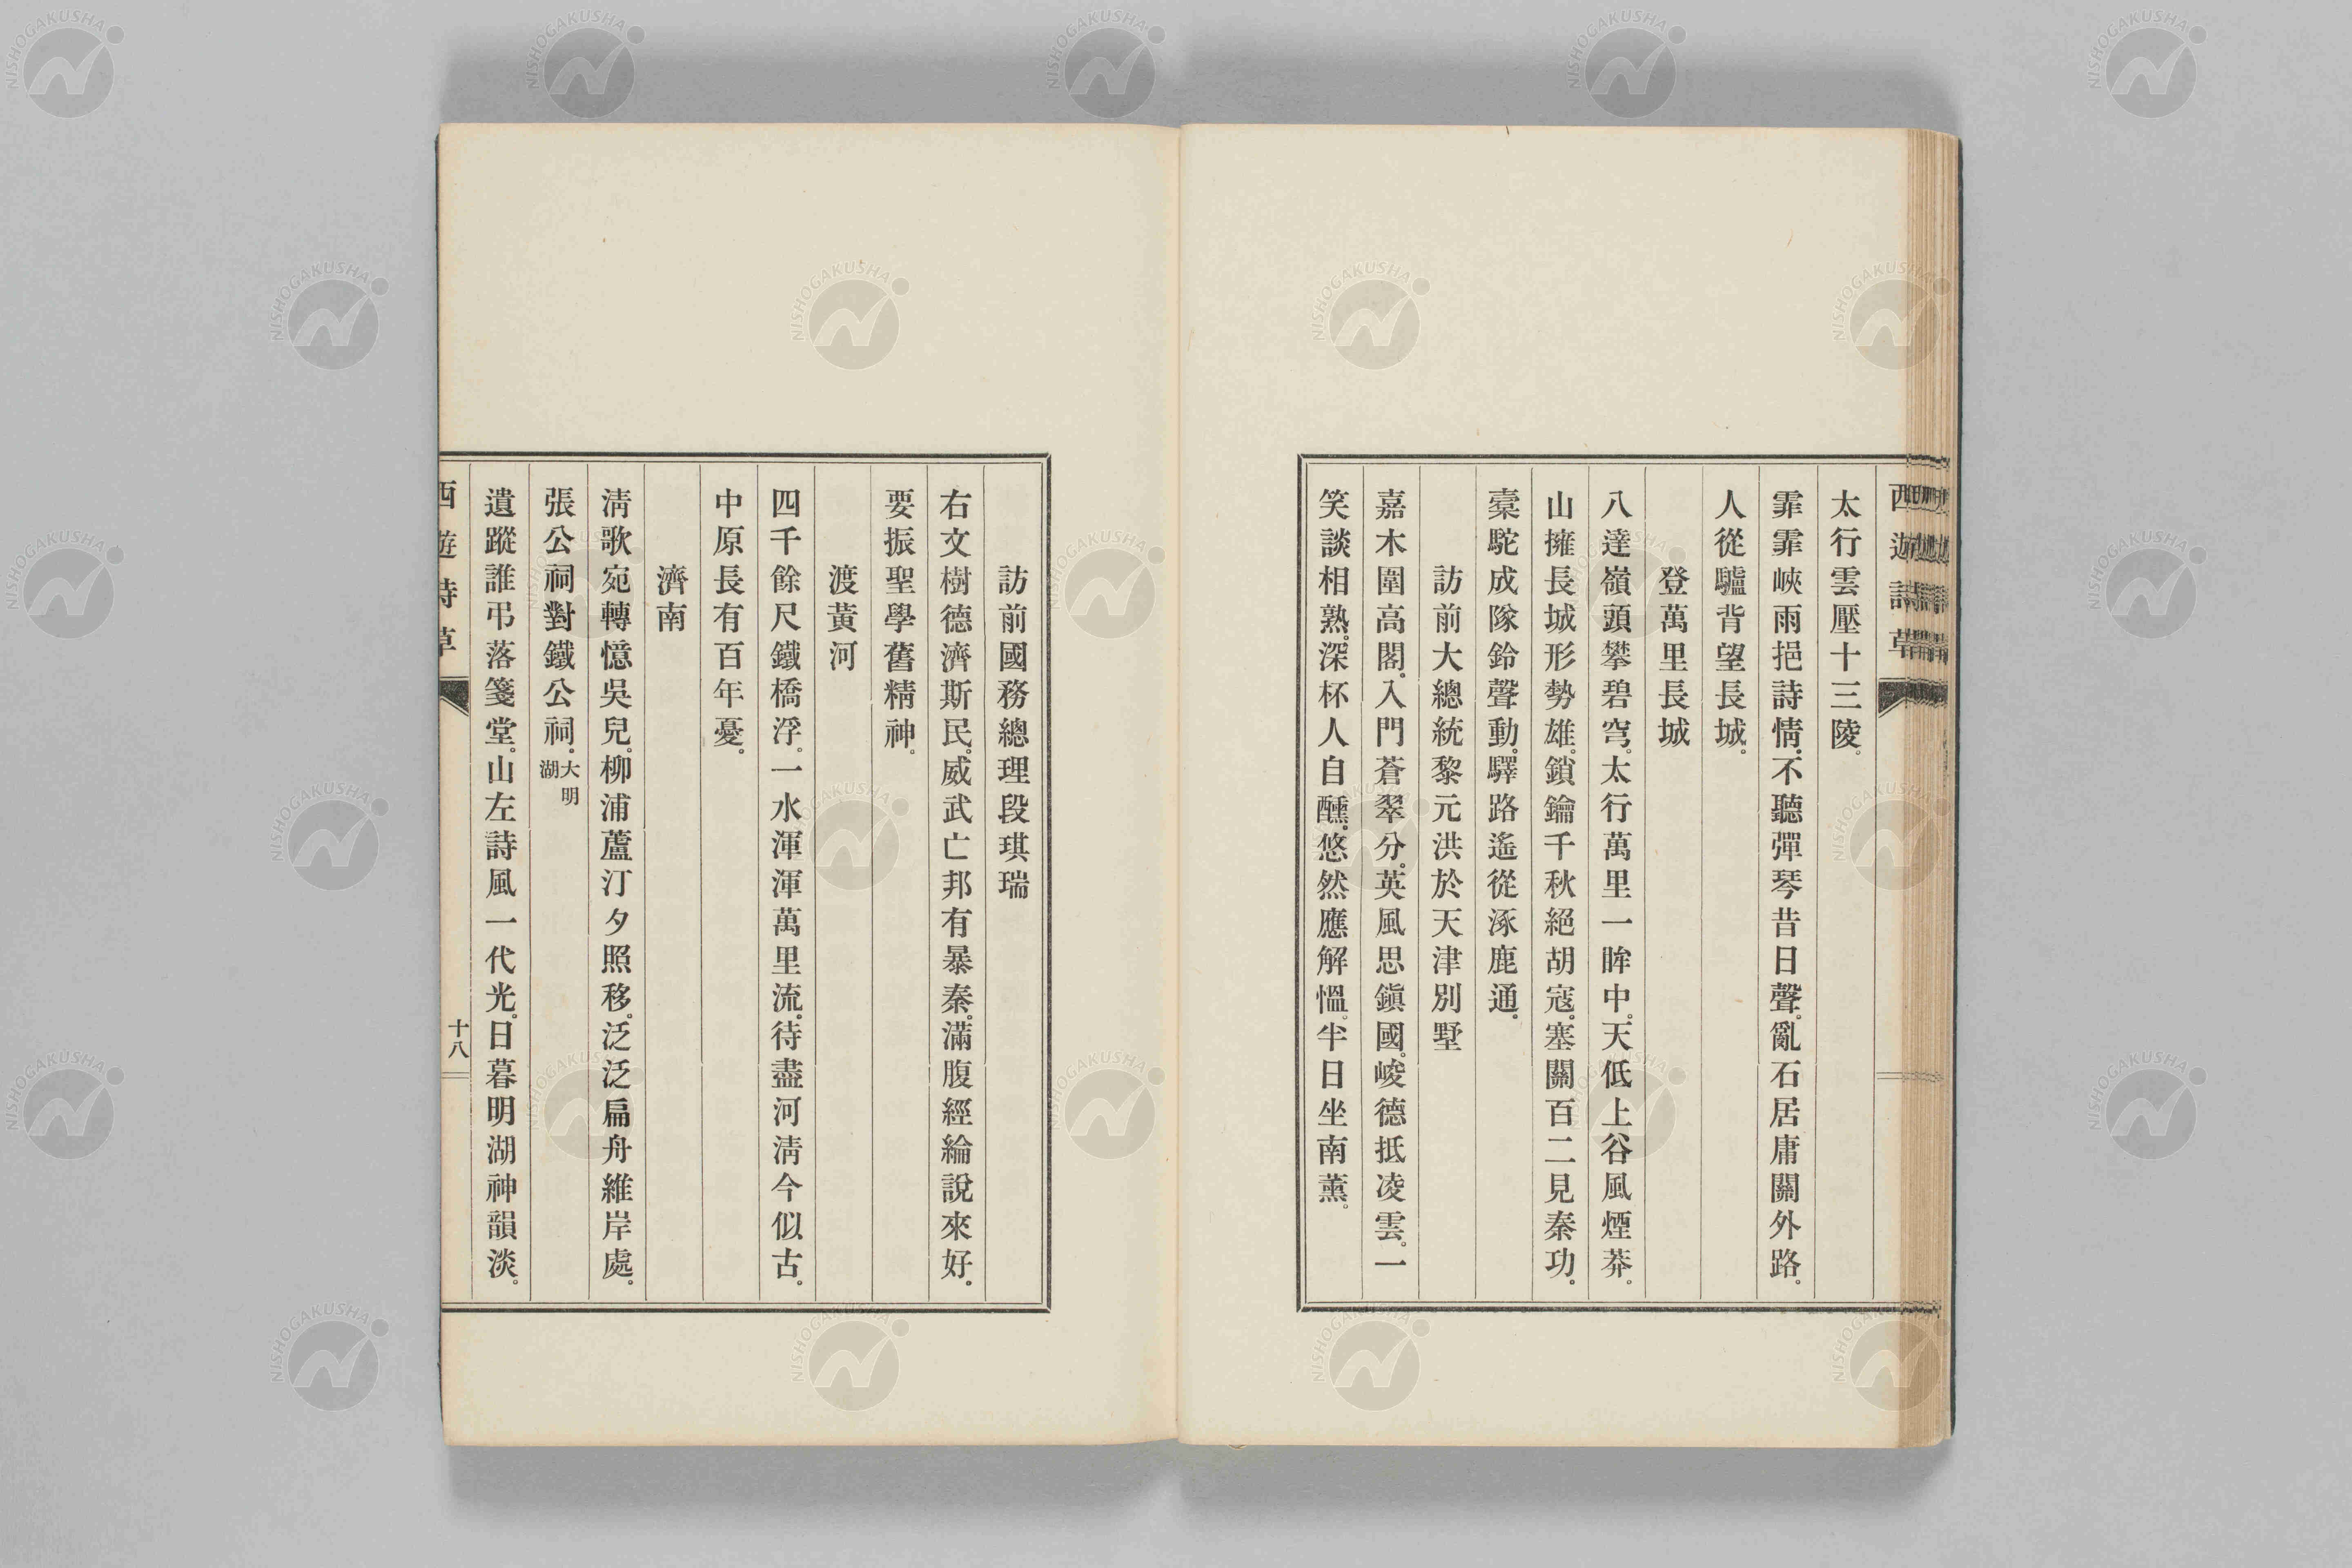 西遊詩草
太行雲壓十三陵。
霏霏峽雨挹詩情。不聽彈琴昔日聲。亂石居庸關外路。
人從驢背望長城。
登萬里長城
八達嶺頭攀碧穹。太行萬里一眸中。天低上谷風煙莽。
山擁長城形勢雄。鎖鑰千秋絕胡寇。塞關百二見秦功。
橐駝成隊鈴聲動。驛路遙從涿鹿通。
訪前大總統黎元洪於天津別墅
嘉木圍高閣。入門蒼翠分。英風思鎭國。峻德抵凌雲。一
笑談相熟。深杯人自醺。悠然應解慍。半日坐南薰。
訪前國務總理段琪瑞
右文樹德濟斯民。威武亡邦有暴秦。滿腹經綸說來好。
要振聖學舊精神。
渡黃河
四千餘尺鐵橋浮。一水渾渾萬里流。待盡河淸今似古。
中原長有百年憂。
濟南
淸歌宛轉憶吳兒。柳浦蘆汀夕照移。泛泛扁舟維岸處。
張公祠對鐵公祠。大明湖
遺蹤誰弔落箋堂。山左詩風一代光。日暮明湖神韻淡。
西遊詩草
十八
NISHOGAKUSHA